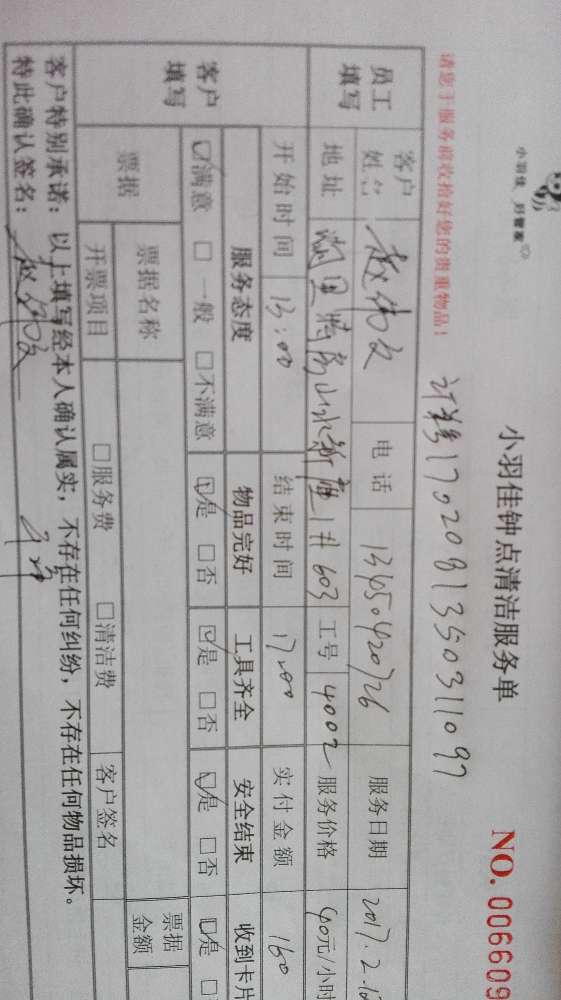 小羽佳 好管家
小羽佳钟点清洁服务单
NO. 006609
请您于服务前收拾好您的贵重物品！
1702081350311097
员工填写 客户姓名 电话 13450420726 服务日期 2017.2.12
地址 山水新座1#603 工号 4002 服务价格 40元/小时
客户填写 开始时间 13:00 结束时间 17:00 实付金额 160
服务态度 物品完好 工具齐全 安全结束 收到卡片
☑满意 □一般 □不满意 ☑是 □否 ☑是 □否 ☑是 □否 ☑是 □
票据 票据名称 票据金额
开票项目 □服务费 □清洁费 客户签名
客户特别承诺：以上填写经本人确认属实，不存在任何纠纷，不存在任何物品损坏。
特此确认签名：